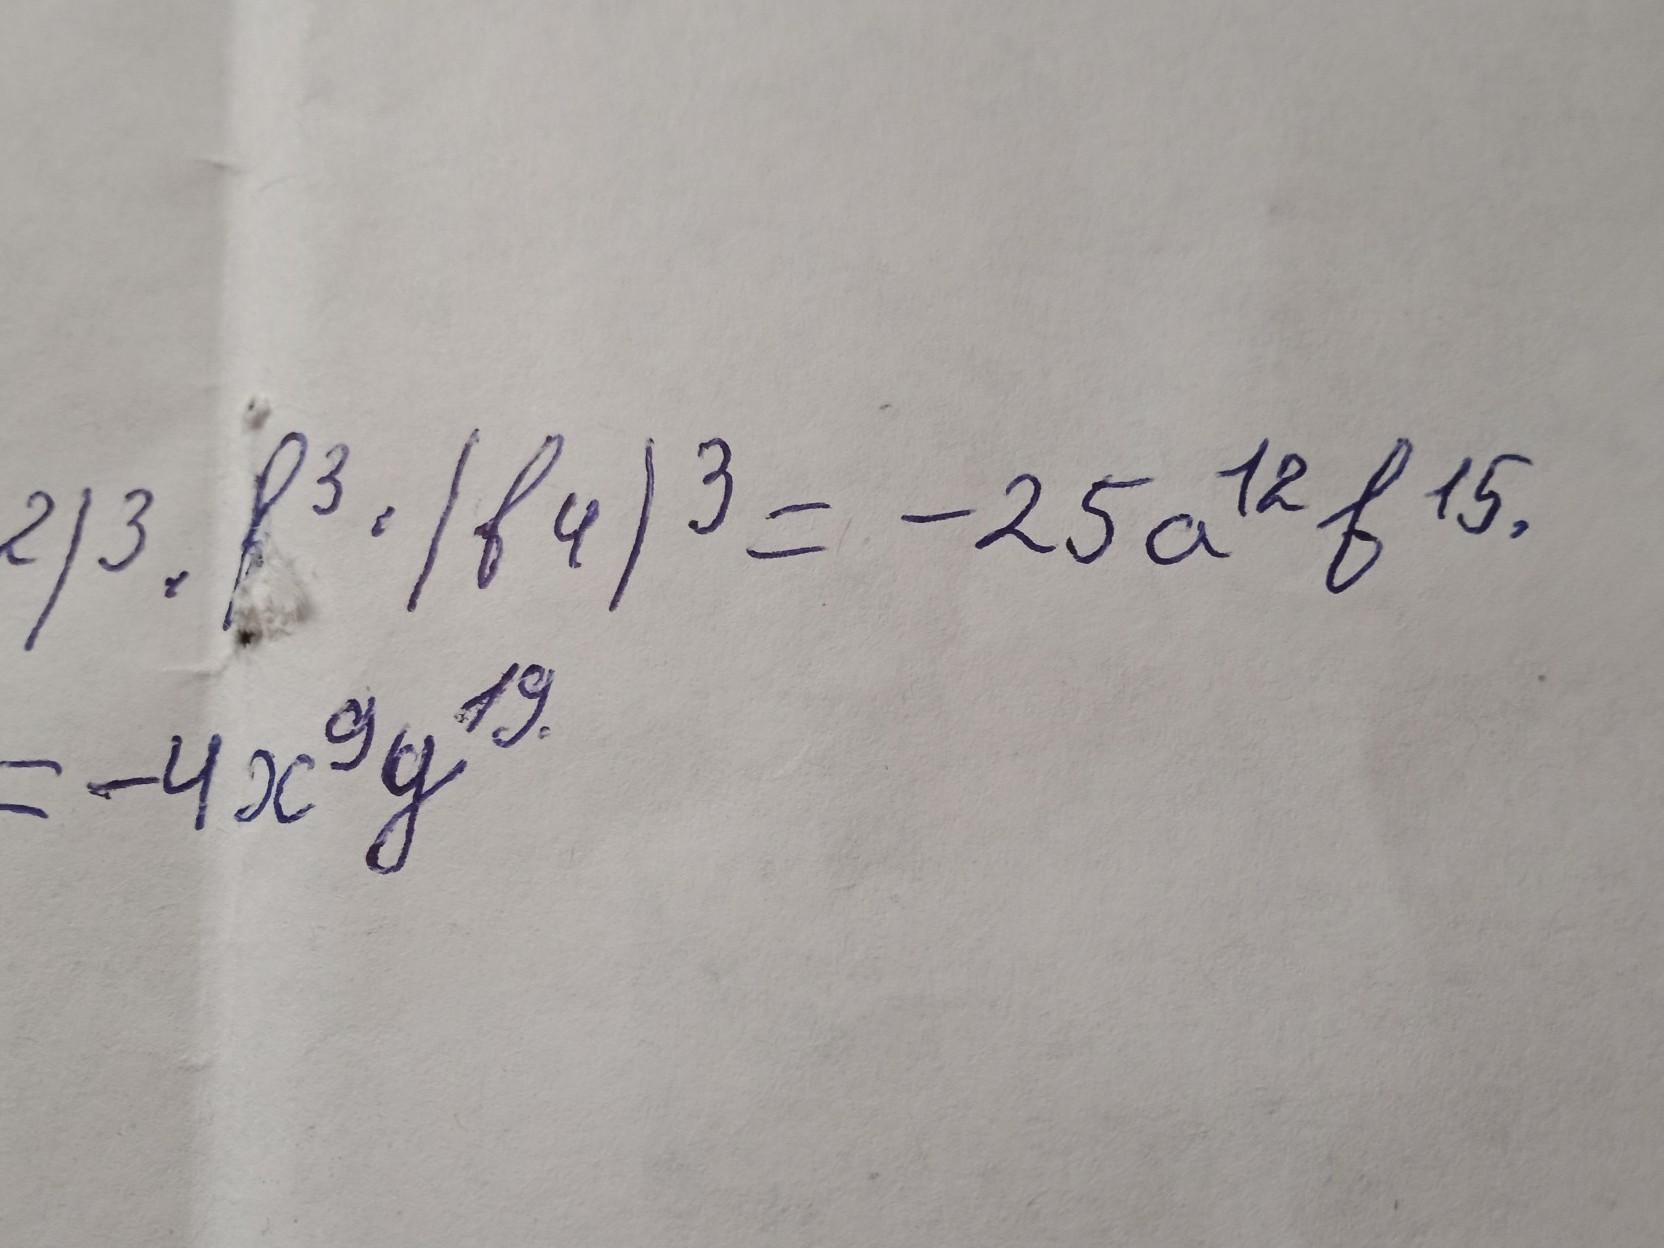 2)3 . b³ . (b4)³ = -25a¹²b¹⁵.
= -4x⁹y¹⁹.